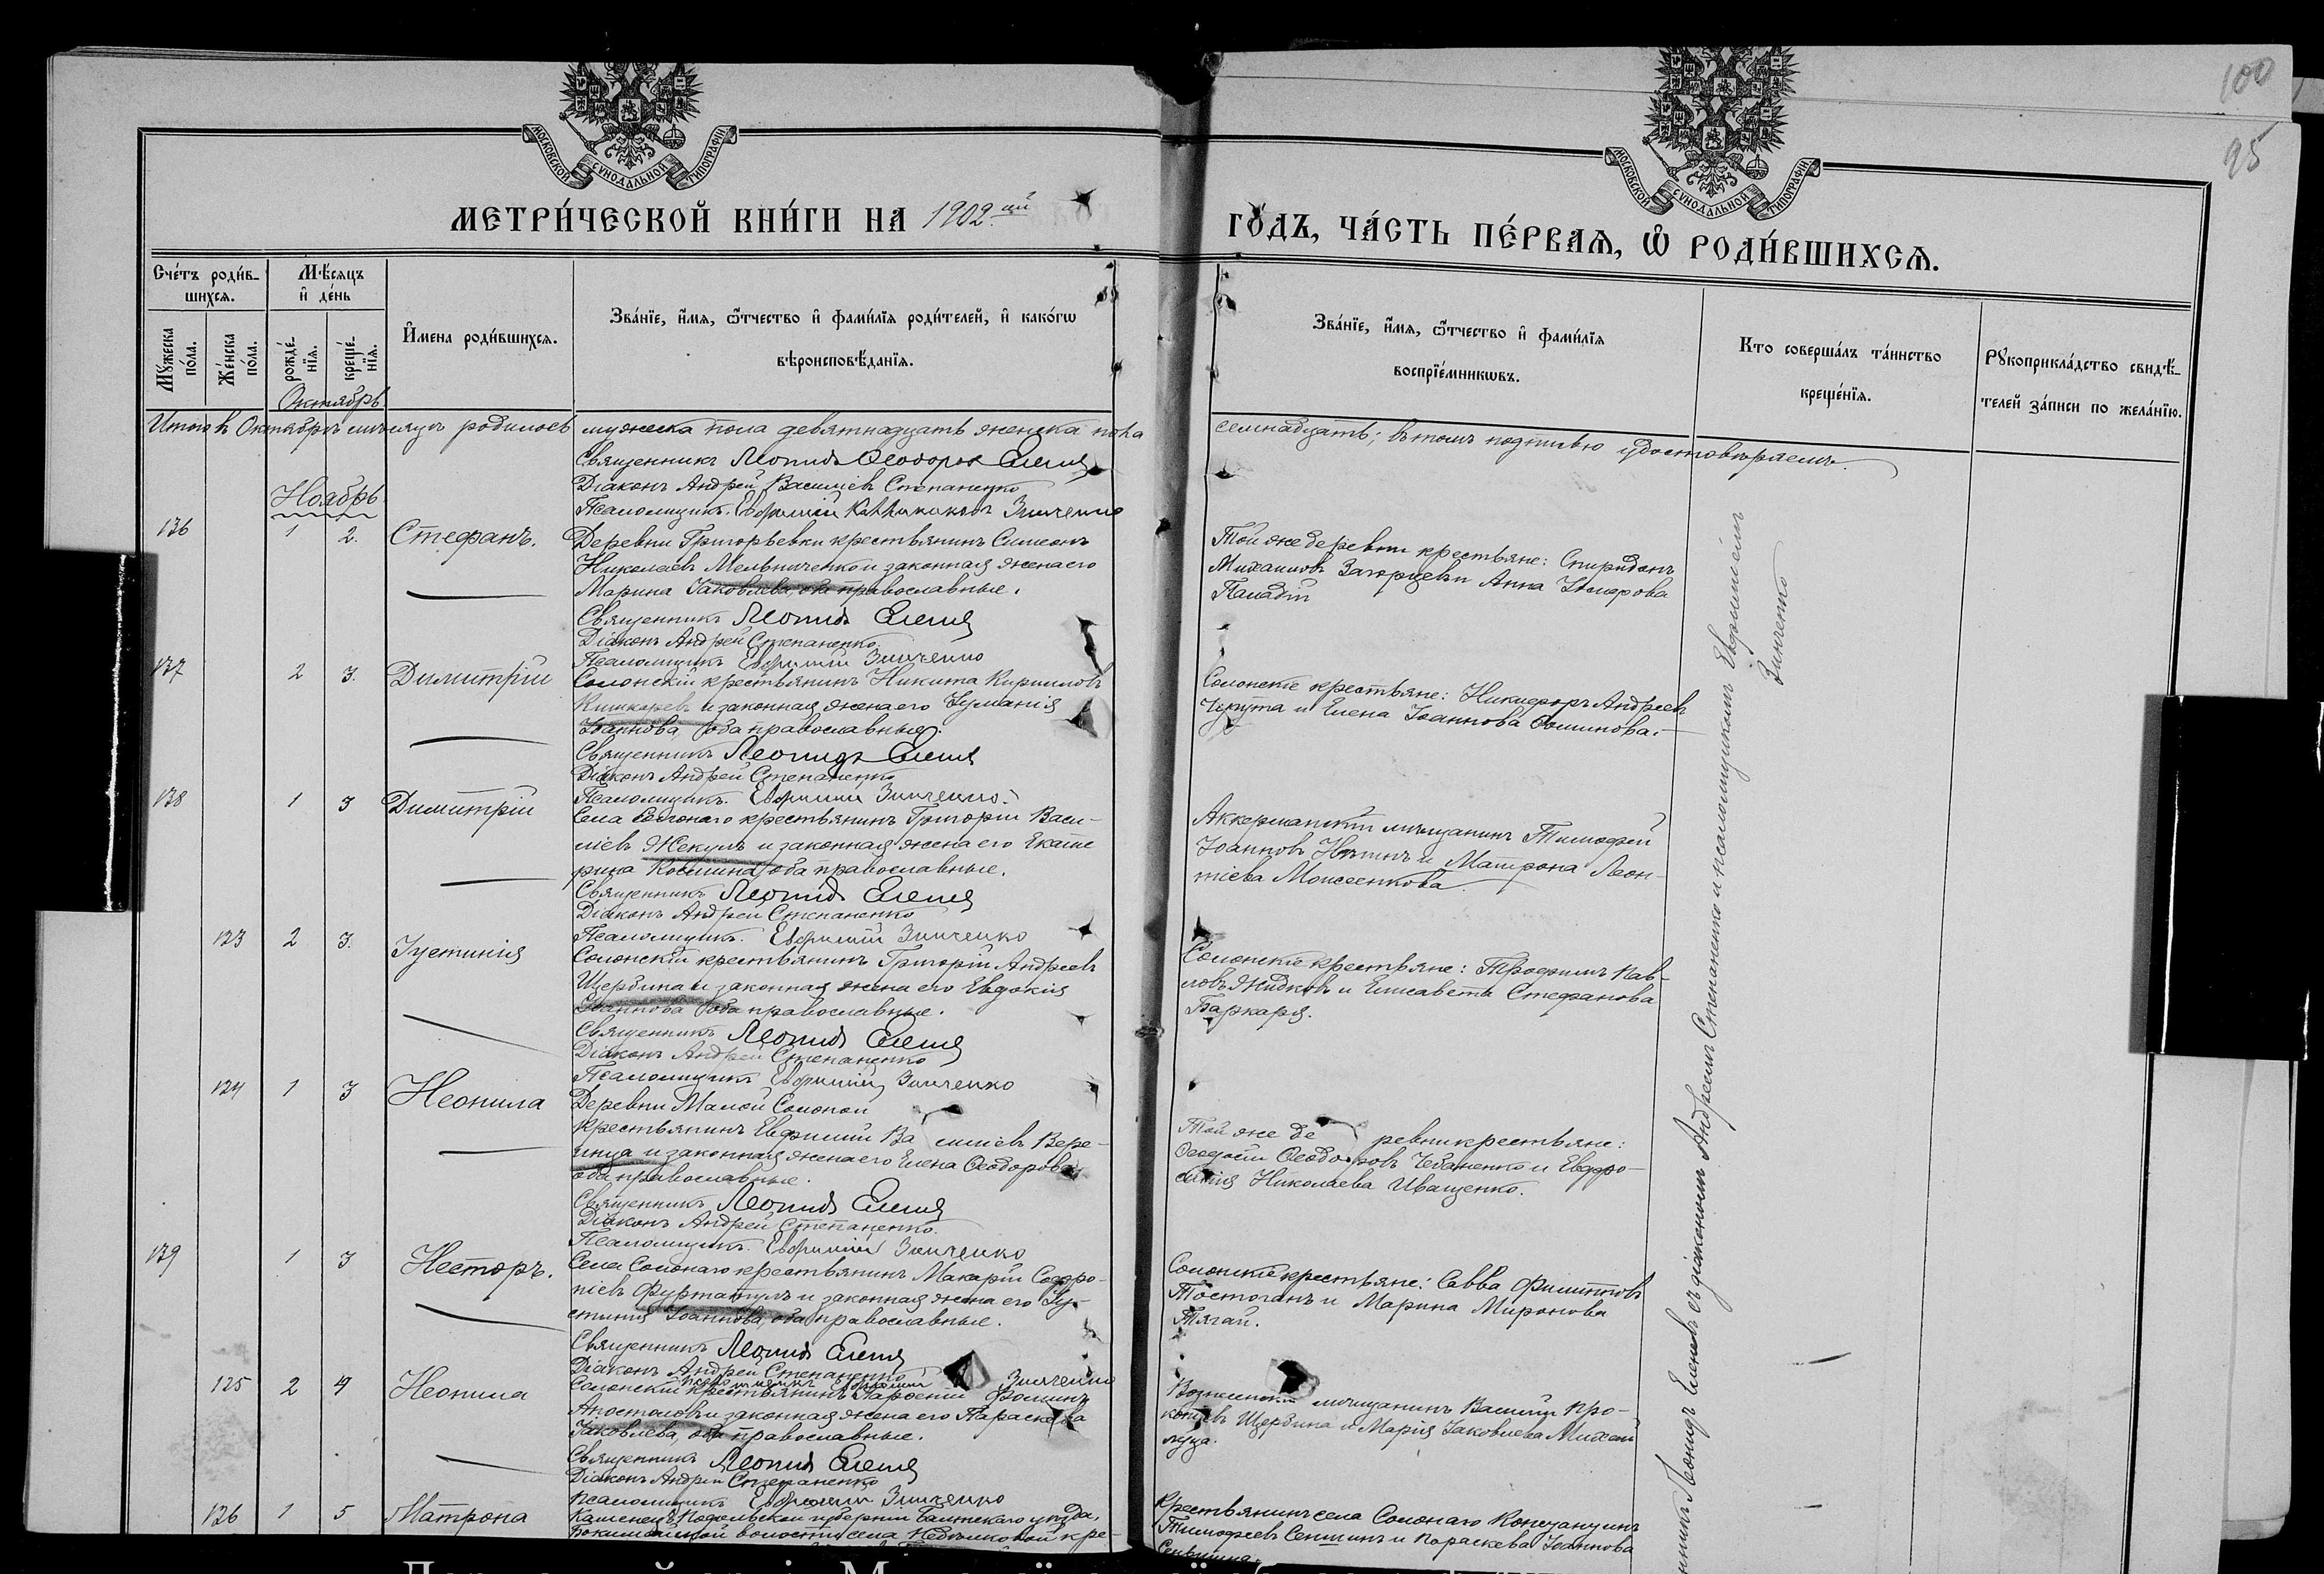 100
95
МОСКОВСКОЙ СѴНОДАЛЬНОЙ ТИПОГРАФІИ
МОСКОВСКОЙ СѴНОДАЛЬНОЙ ТИПОГРАФІИ
МЕТРИ́ЧЕСКОЙ КНИ́ГИ НА 1902.ый
ГО́ДЪ, ЧА́СТЬ ПЕ́РВАѦ, Ѡ҆ РОДИ́ВШИХСѦ.
Сче́тъ роди́в-
шихсѧ.
Мѣ́сѧцъ
и҆ де́нь
Мꙋ́жеска
по́ла.
Же́нска
по́ла.
рожде́-
нїѧ.
креще́-
нїѧ.
И҆мена роди́вшихсѧ.
Зва́нїе, и҆́мѧ, ѻ҆́тчество и҆ фами́лїѧ роди́телей, и҆ како́гѡ
вѣроисповѣ́данїѧ.
Зва́нїе, и҆́мѧ, ѻ҆́тчество и҆ фами́лїѧ
воспрїе́мникѡвъ.
Кто соверша́лъ та́инство
креще́нїѧ.
Рꙋкоприкла́дство свидѣ́-
телей за́писи по жела́нїю.
Октябрь
Итого въ Октябрѣ мѣсяцѣ родилось мужеска пола девятнадцать женска пола
семнадцать; въ томъ подписью удостовѣряемъ.
Священникъ Леонидъ Ѳеодоровъ
Діаконъ Андрей Василіевъ Степаненко
Псаломщикъ Евфимій Зинченко
Ноябрь
136 1 2. Стефанъ. Деревни Григорьевки крестьянинъ Симеонъ
Николаевъ Мельниченко и законная жена его
Марина Іаковлева, оба православные.
Той же деревни крестьяне: Спиридонъ
Михаиловъ и Анна
Паладій
Священникъ Леонидъ
Діаконъ Андрей Степаненко
Псаломщикъ Евфимій Зинченко
137 2 3. Димитрій Солонскій крестьянинъ Никита Кирилловъ
и законная жена его Іуліанія
Іоаннова, оба православные.
Солонскіе крестьяне: Никифоръ Андреевъ
и Елена Іоаннова
Священникъ Леонидъ
Діаконъ Андрей Степаненко
Псаломщикъ. Евфимій Зинченко.
138 1 3 Димитрій
Села Солонаго крестьянинъ Григорій Васи-
ліевъ Жекулъ и законная жена его Екате
рина оба православные.
Аккерманскій мѣщанинъ Тимофей
Іоанновъ и Матрона Леон-
тіева Моисеенкова.
Священникъ Леонидъ
Діаконъ Андрей Степаненко
Псаломщикъ. Евфимій Зинченко
123 2 3. Іустинія
Солонскій крестьянинъ Григорій Андреевъ
Щербина и законная жена его Евдокія
Іоаннова оба православные.
Солонскіе крестьяне: Трофимъ Пав-
ловъ Жидковъ и Елисавета Стефанова
Баркаря.
Священникъ Леонидъ
Діаконъ Андрей Степаненко
Псаломщикъ Евфимій Зинченко
124 1 3 Неонила Деревни Малой Солоной
крестьянинъ Евфимій Ва силіевъ Вере-
и законная жена его Елена Ѳеодорова
оба православные.
Той же де ревни крестьяне:
Ѳеодосій Ѳеодоровъ Чебаненко и Евфро-
синія Николаева Иващенко.
Священникъ Леонидъ
Діаконъ Андрей Степаненко.
Псаломщикъ. Евфимій Зинченко
139 1 3 Несторъ. Села Солонаго крестьянинъ Макарій Софро-
ніевъ и законная жена его Іу-
стинія Іоаннова, оба православные.
Солонскіе крестьяне: Савва Филипповъ
и Марина Миронова
Тягай.
Священникъ Леонидъ
Діаконъ Андрей Степаненко
Псаломщикъ Евфимій Зинченко
125 2 4 Неонила Солонскій крестьянинъ Парѳеній Фоминъ
Апостоловъ и законная жена его Параскева
Іаковлева, оба православные.
Вознесенскій мѣщанинъ Василій Про-
копіевъ Щербина и Марія Іаковлева Михай
луца.
Священникъ Леонидъ
Діаконъ Андрей Степаненко
Псаломщикъ Евфимій Зинченко
126 1 5 Матрона Каменецъ-Подольской губерніи Балтскаго уѣзда,
волости села кре-
Крестьянинъ села Солонаго
Тимофеевъ и Параскева Іоаннова
Леонидъ съ діакономъ Андреемъ Степаненко и псаломщикомъ Евфиміемъ
Зинченко